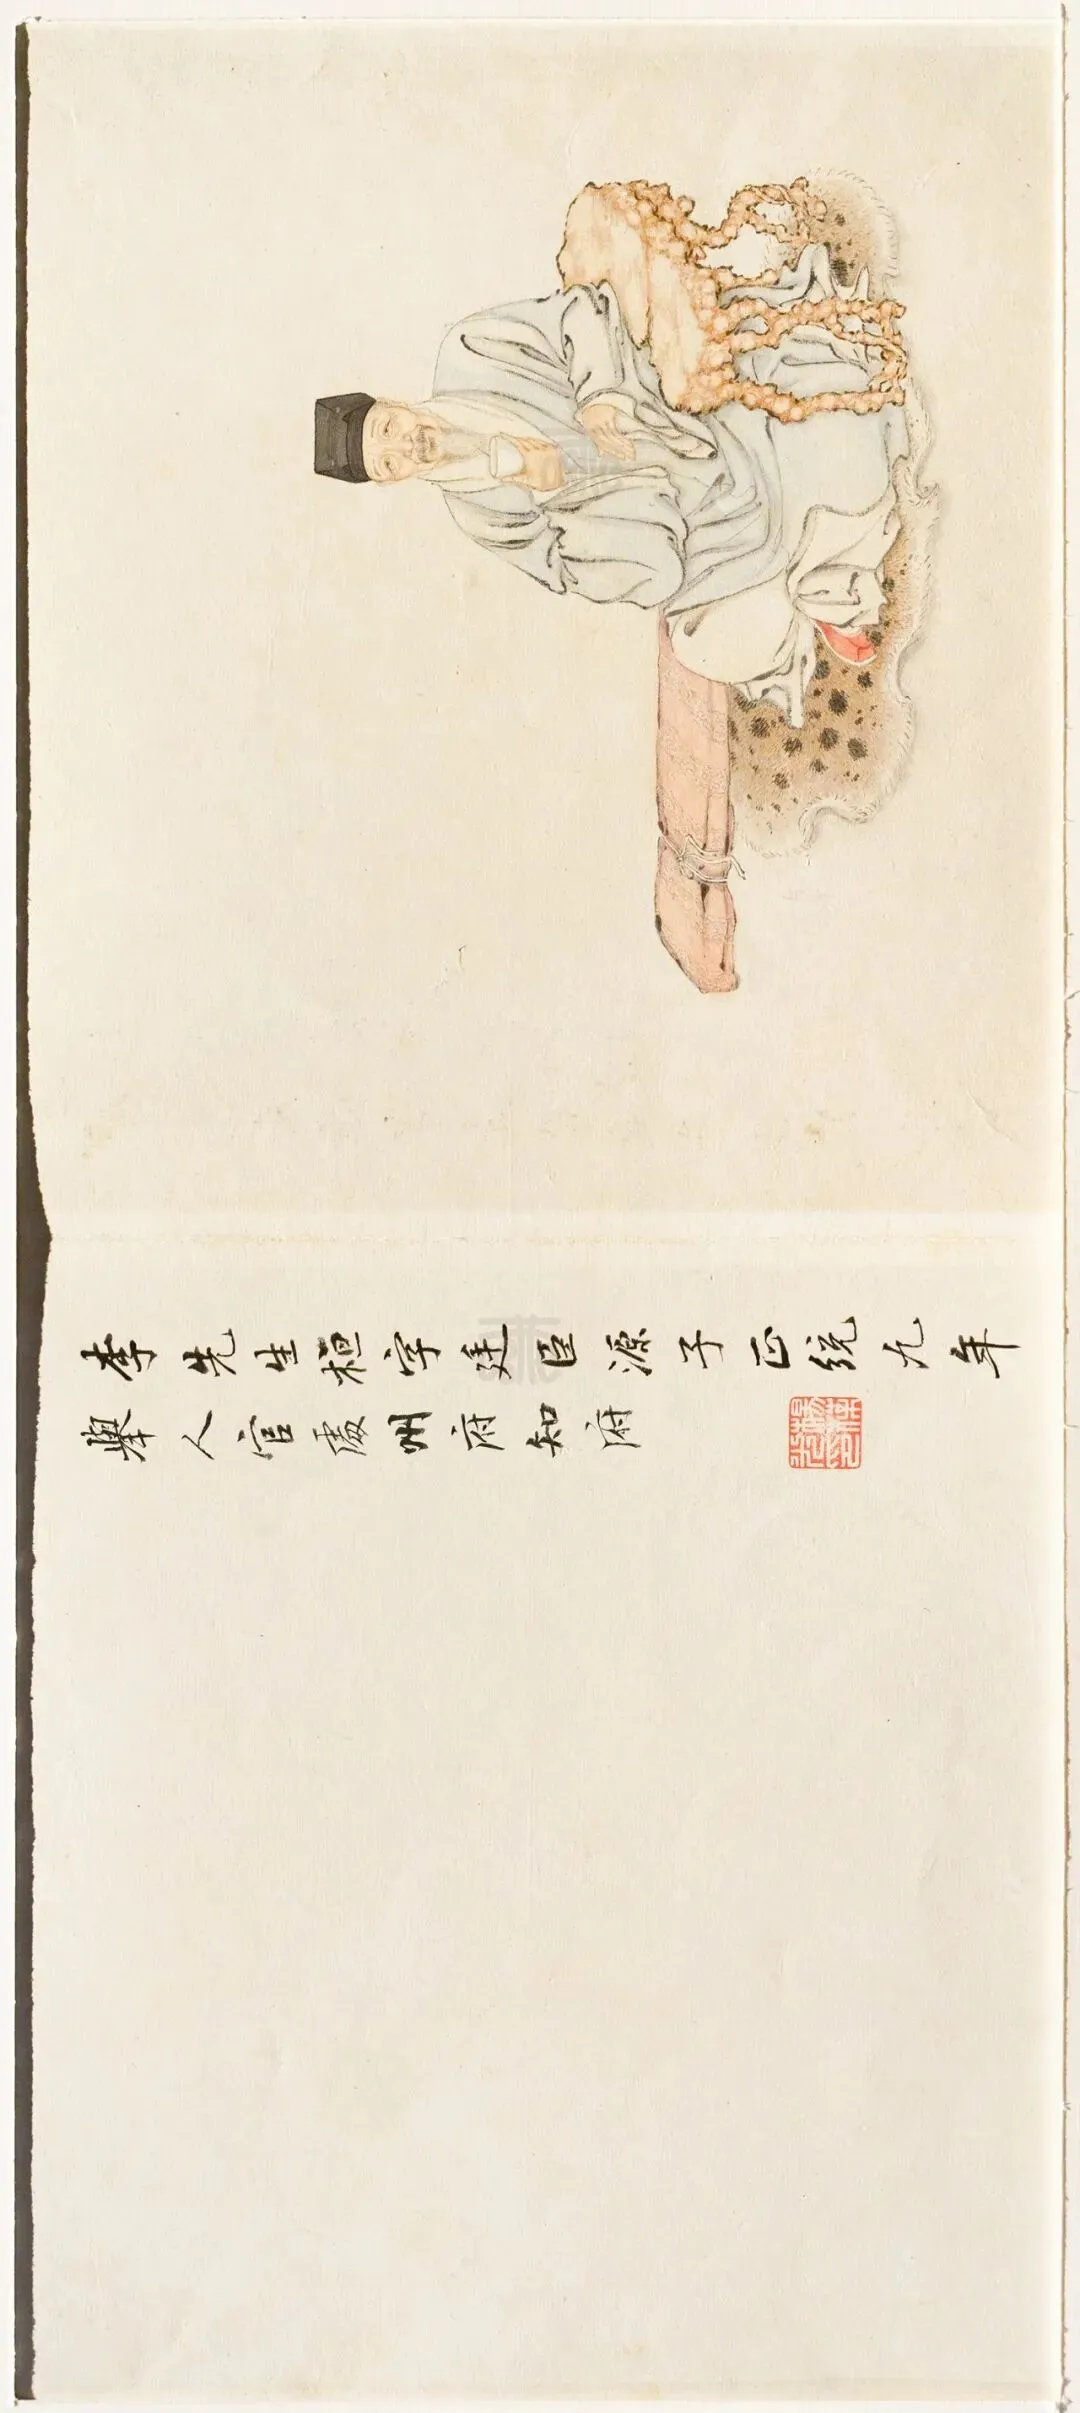 李先生桓字廷臣源子正統九年
舉人官處州府知府